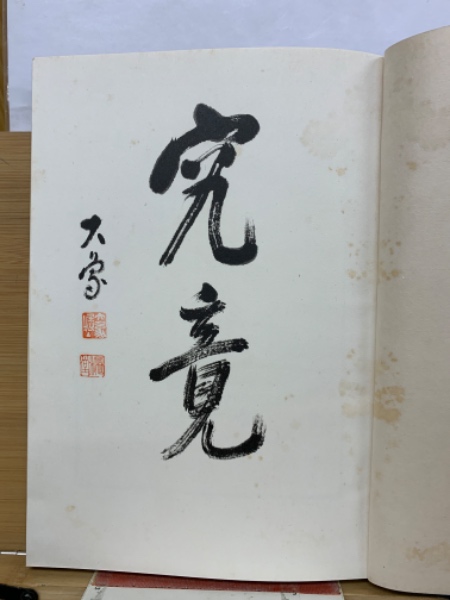 究竟
大象